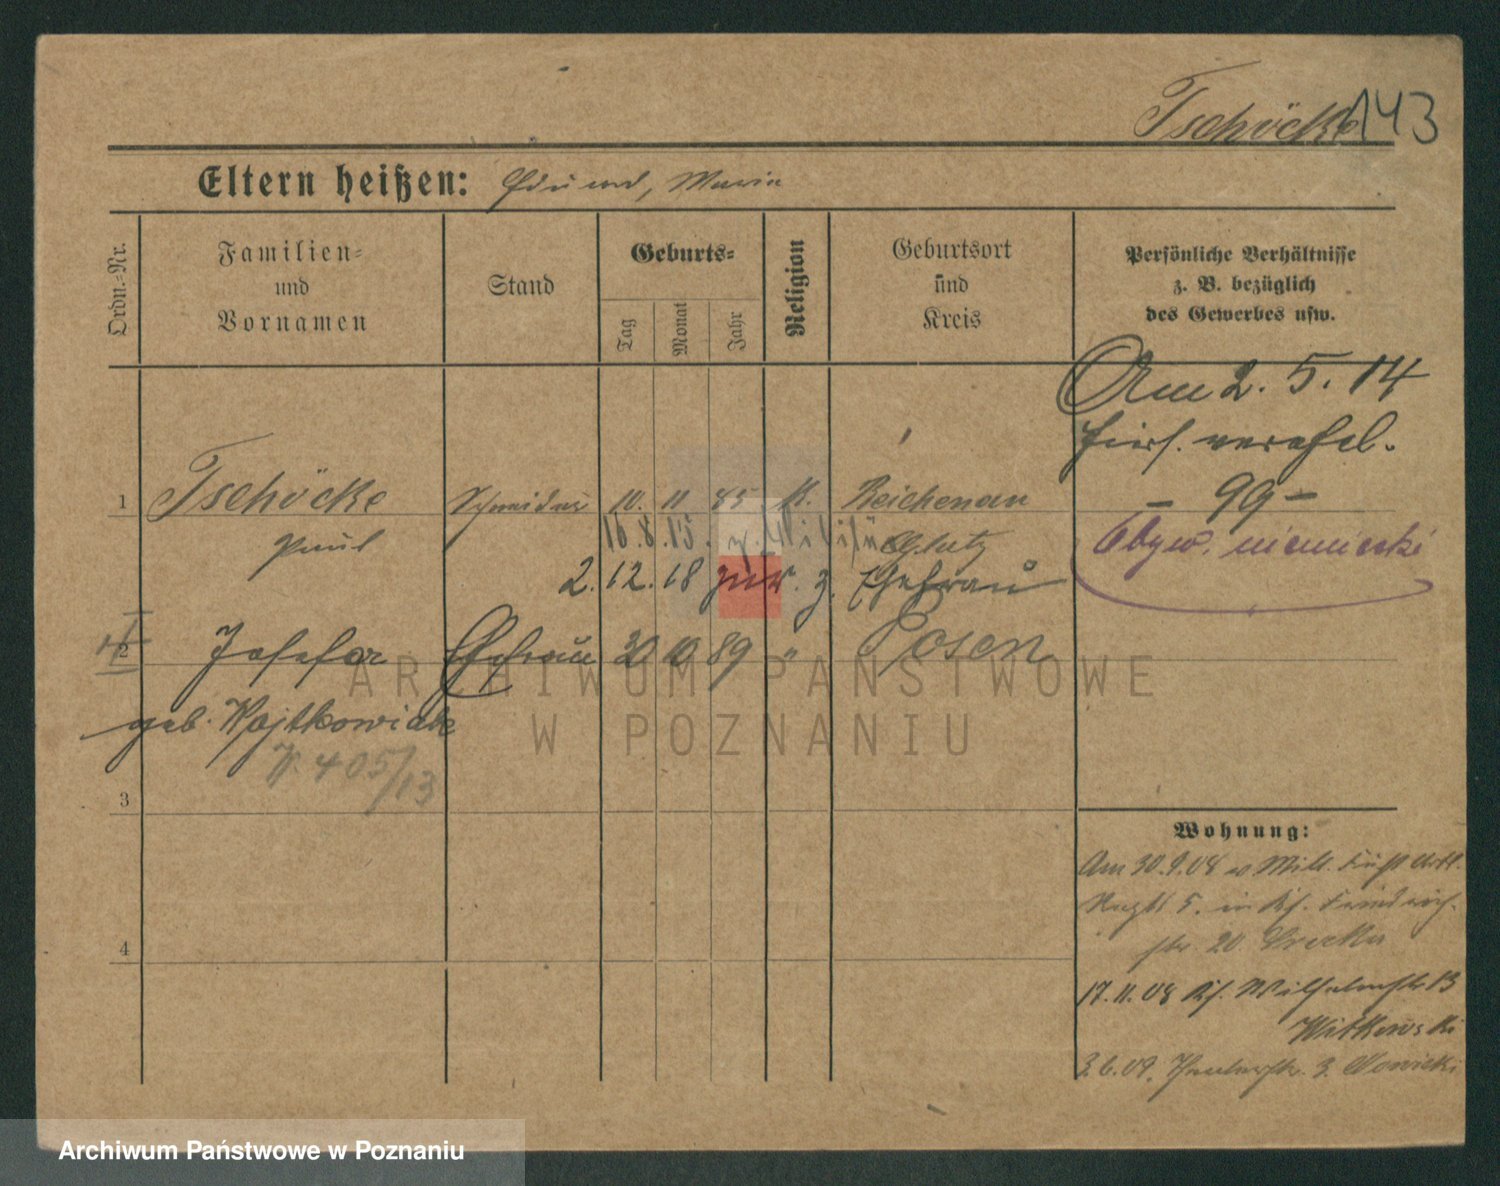 Tschöcke 143
Eltern heißen: Eduard, Maria
Ordn.=Nr.
Familien=
und
Vornamen
Stand
Geburts=
Tag
Monat
Jahr
Religion
Geburtsort
und
Kreis
Persönliche Verhältnisse
z. B. bezüglich
des Gewerbes usw.
Am 2. 5. 14
hiers. verehel.
1 Tschöcke Schneider 10. 11 85 K. Reichenau
– 99 –
Paul
16.8.15. z. Militär
Glatz
Obyw. niemiecki
2. 12. 18 zur. z. Ehefrau
2 Josefa Ehefrau 30 10 89 " Posen
geb. Wojtkowiak
V. 405/13
3
4
Wohnung:
Am 30.9.08 v Mill. Fußart.
Regt 5. in Friedrich-
str. 20
17.11.08 Wilhelmstr 13
Witkowski
3.6.09. Theaterstr. 3. Nowicki
ARCHIWUM PAŃSTWOWE
W POZNANIU
Archiwum Państwowe w Poznaniu